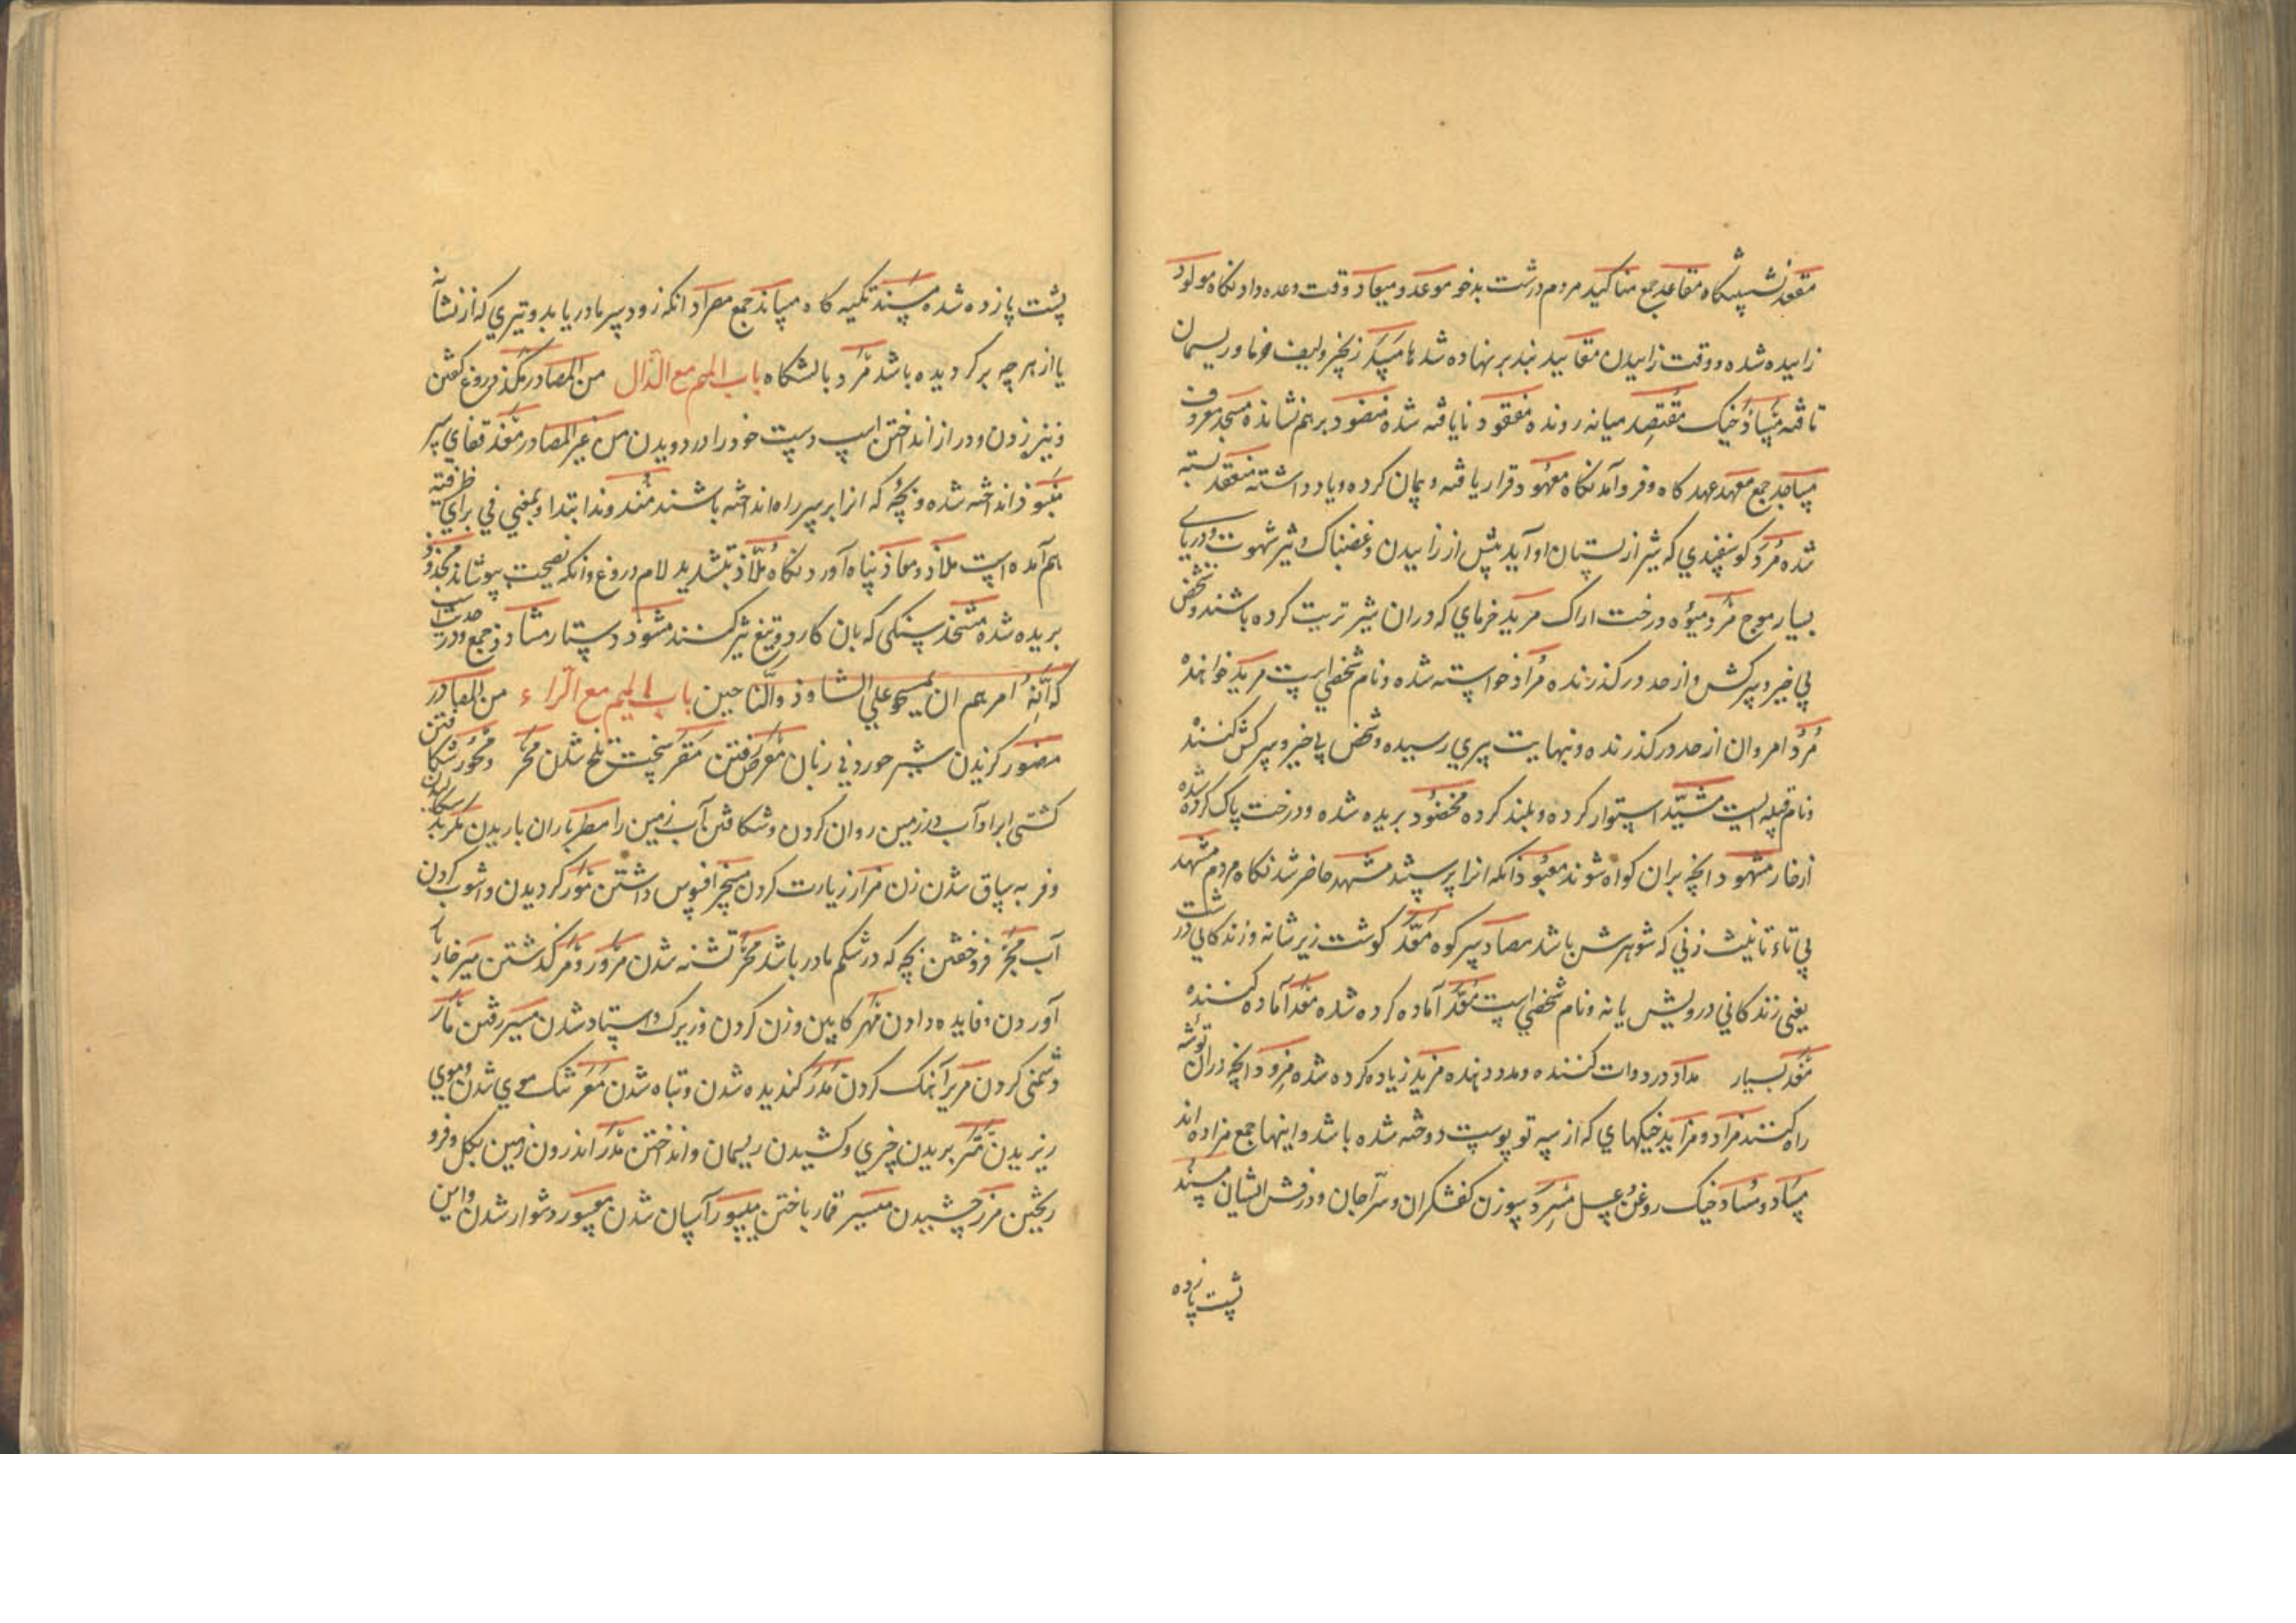 مقعد نشستنگاه مقاعد جمع مناکید مردم درشت بدخو موعد و میعاد وقت وعده دادنگاه مولود
زاییده شده و وقت زاییدن مقالید بند بر نهاده شدها مسد زنجیر ولیف خرما و ریسمان
تافته مساد خیک مقتصد میانه رونده مفقود نایافته شده منضود بر هم نشانده مسجد معروف
مساجد جمع معهد عهد کاه و فرو آمدنگاه معهود قرار یافته و پیمان کرده و یاد داشته منعقد بسته
شده مرد کوسفندی که شیر از پستان او آید پیش از زاییدن و غضبناک و شیر شهوت و دریای
بسیار موج مرد میوه درخت اراک مرید خرمای که دران شیر تربیت کرده باشند و شخص
بی خیر و سرکش و از حد در کذرنده مراد خواسته شده و نام شخصی است مرید خواهنده
مرد امردان از حد در کذرنده و نهایت پیری رسیده و شخص بی خیر و سرکش کنند
و نام قبیله ایست مشید استوار کرده و بلند کرده مخضود بریده شده و درخت پاک کرده شده
از خار مشهود انچه بران کواه شوند معبود انکه انرا پرستند مشهد حاضر شدنگاه مردم مشهد
بی تاء تانیث زنی که شوهرش باشد مصاد سر کوه مقد کوشت زیر شانه و زندکانی درشت
یعنی زندکانی درویش یانه و نام شخصی است معد آماده کرده شده معد آماده کننده
مغد بسیار مداد در دوات کننده و مدد دهنده مزید زیاده کرده شده مزود انچه دران توشه
راه کنند مزاد و مزاید خیکهای که از سه تو پوست دوخته شده باشد و اینها جمع مزاده اند
مساد و مساد خیک روغن و عسل مسرد سوزن کفشکران و سراجان و درفش ایشان مسند
پشت پا زده
پشت پا زده شده مسند تکیه کاه مساند جمع مصراد انکه زود سرما دریابد و تیری که از نشانه
یا از هر چه بر کردیده باشد مرد بالشکاه باب المیم مع الذال من المصادر مکذ دروغ کفتن
و نیزه زدن و دراز انداختن اسپ دست خود را در دویدن من غیر المصادر مقذ قفای سر
منبوذ انداخته شده و بچه که انرا بر سر راه انداخته باشند منذ و مذ ابتدا و بمعنی فی برای ظرفیه
هم آمده است ملاذ و معاذ پناه آوردنگاه ملاذ بتشدید لام دروغ و انکه نصیحت بپوشاند مجذوذ
بریده شده مشحذ سنکی که بان کارد و تیغ تیز کنند مشوذ دستار مشاوذ جمع و در حدیث است
که انه امرهم ان یمسحوا علی المشاوذ والتساخین باب المیم مع الراء من المصادر
مضور کزیدن شیر خوردنی زبان معر رفتن مقر سخت تلخ شدن مخر و مخور شکافتن
کشتی ابرا و آب در زمین روان کردن و شکافتن آب زمین را مطر باران باریدن مکر بد سکالیدن
و فربه ساق شدن زن مزار زیارت کردن مسخر افسوس داشتن مور کردیدن و آشوب کردن
آب مجر فروختن بچه که در شکم مادر باشد مجر تشنه شدن مرور و ممر کذشتن میر خاربار
آوردن و فایده دادن مهر کابین وزن کردن و زیرک و استاد شدن مسیر رفتن مأر
دشمنی کردن مریر آهنک کردن مذر کندیده شدن و تباه شدن معر تنک موی شدن و موی
ریزیدن متر بریدن چیزی و کشیدن ریسمان و انداختن مدر اندرون زمین بکل و فرو
ریختن مزر چشیدن میسر قمار باختن میسور آسان شدن معسور دشوار شدن و این